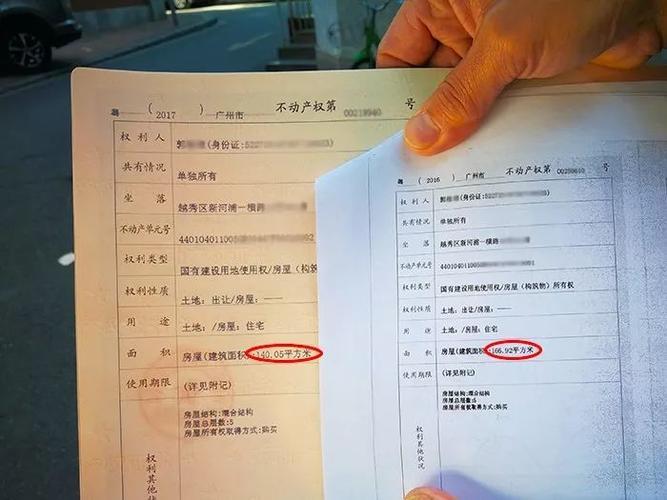 粤 ( 2017 ) 广州市 不动产权第 00219940 号
权利人 郭 (身份证:5227
共有情况 单独所有
坐落 越秀区新河浦一横路
不动产单元号 440104011005
权利类型 国有建设用地使用权/房屋(构筑
权利性质 土地:出让/房屋:——
用途 土地:/房屋:住宅
面积 房屋(建筑面积):140.05平方米
使用期限 (详见附记)
房屋结构:混合结构
房屋总层数:5
房屋所有权取得方式:购买
权利其他状
粤 ( 2016 ) 广州市 不动产权第 号
权利人 郭 (身份证:522
共有情况 单独所有
坐落 越秀区新河浦一横路
不动产单元号 44010401100
权利类型 国有建设用地使用权/房屋(构筑物)所有权
权利性质 土地:出让/房屋:——
用途 土地:/房屋:住宅
面积 房屋(建筑面积):166.92平方米
使用期限 (详见附记)
房屋结构:混合结构
房屋总层数:5
房屋所有权取得方式:购买
权利其他状况